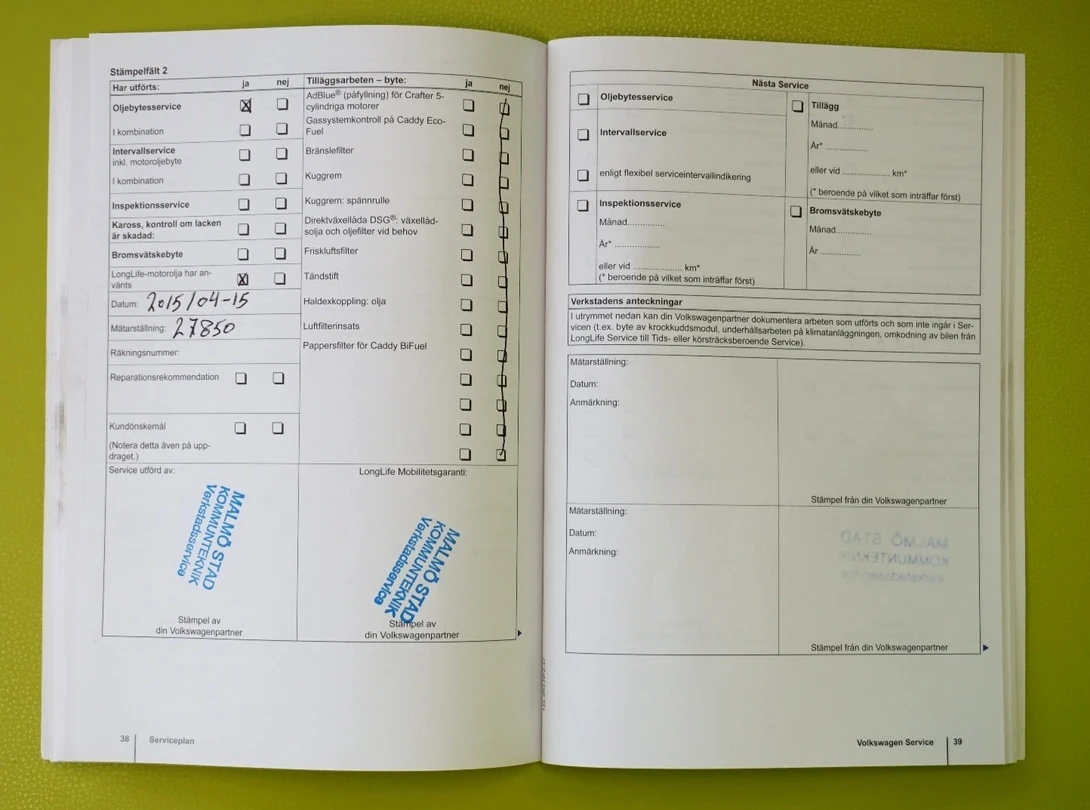 Stämpelfält 2
Har utförts: ja nej
Oljebytesservice
I kombination
Intervallservice
inkl. motoroljebyte
I kombination
Inspektionsservice
Kaross, kontroll om lacken
är skadad:
Bromsvätskebyte
LongLife-motorolja har an-
vänts
Datum: 2015/04-15
Mätarställning: 27850
Räkningsnummer:
Reparationsrekommendation
Kundönskemål
(Notera detta även på upp-
draget.)
Service utförd av:
MALMÖ STAD
KOMMUNTEKNIK
Verkstadsservice
Stämpel av
din Volkswagenpartner
Tilläggsarbeten – byte: ja nej
AdBlue® (påfyllning) för Crafter 5-
cylindriga motorer
Gassystemkontroll på Caddy Eco-
Fuel
Bränslefilter
Kuggrem
Kuggrem: spännrulle
Direktväxellåda DSG®: växellåd-
solja och oljefilter vid behov
Friskluftsfilter
Tändstift
Haldexkoppling: olja
Luftfilterinsats
Pappersfilter för Caddy BiFuel
LongLife Mobilitetsgaranti:
MALMÖ STAD
KOMMUNTEKNIK
Verkstadsservice
Stämpel av
din Volkswagenpartner
38 Serviceplan
Nästa Service
Oljebytesservice
Intervallservice
enligt flexibel serviceintervallindikering
Inspektionsservice
Månad..............
År* ..................
eller vid .................... km*
(* beroende på vilket som inträffar först)
Tillägg
Månad..............
År* .................
eller vid ................... km*
(* beroende på vilket som inträffar först)
Bromsvätskebyte
Månad..............
År ................
Verkstadens anteckningar
I utrymmet nedan kan din Volkswagenpartner dokumentera arbeten som utförts och som inte ingår i Ser-
vicen (t.ex. byte av krockkuddsmodul, underhållsarbeten på klimatanläggningen, omkodning av bilen från
LongLife Service till Tids- eller körsträcksberoende Service).
Mätarställning:
Datum:
Anmärkning:
Stämpel från din Volkswagenpartner
Mätarställning:
Datum:
Anmärkning:
MALMÖ STAD
KOMMUNTEKNIK
Verkstadsservice
Stämpel från din Volkswagenpartner
Volkswagen Service 39